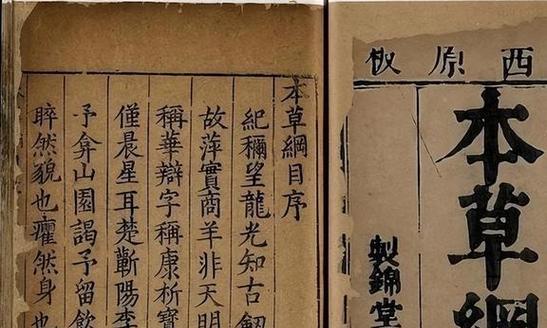 西原板
本草綱
製錦堂
本草綱目序
紀穪望龍光知古劍
故萍實商羊非天明
稱華辯字稱康析寶
僅晨星耳楚蘄陽李
予弇山園謁予留飲
睟然貌也癯然身也